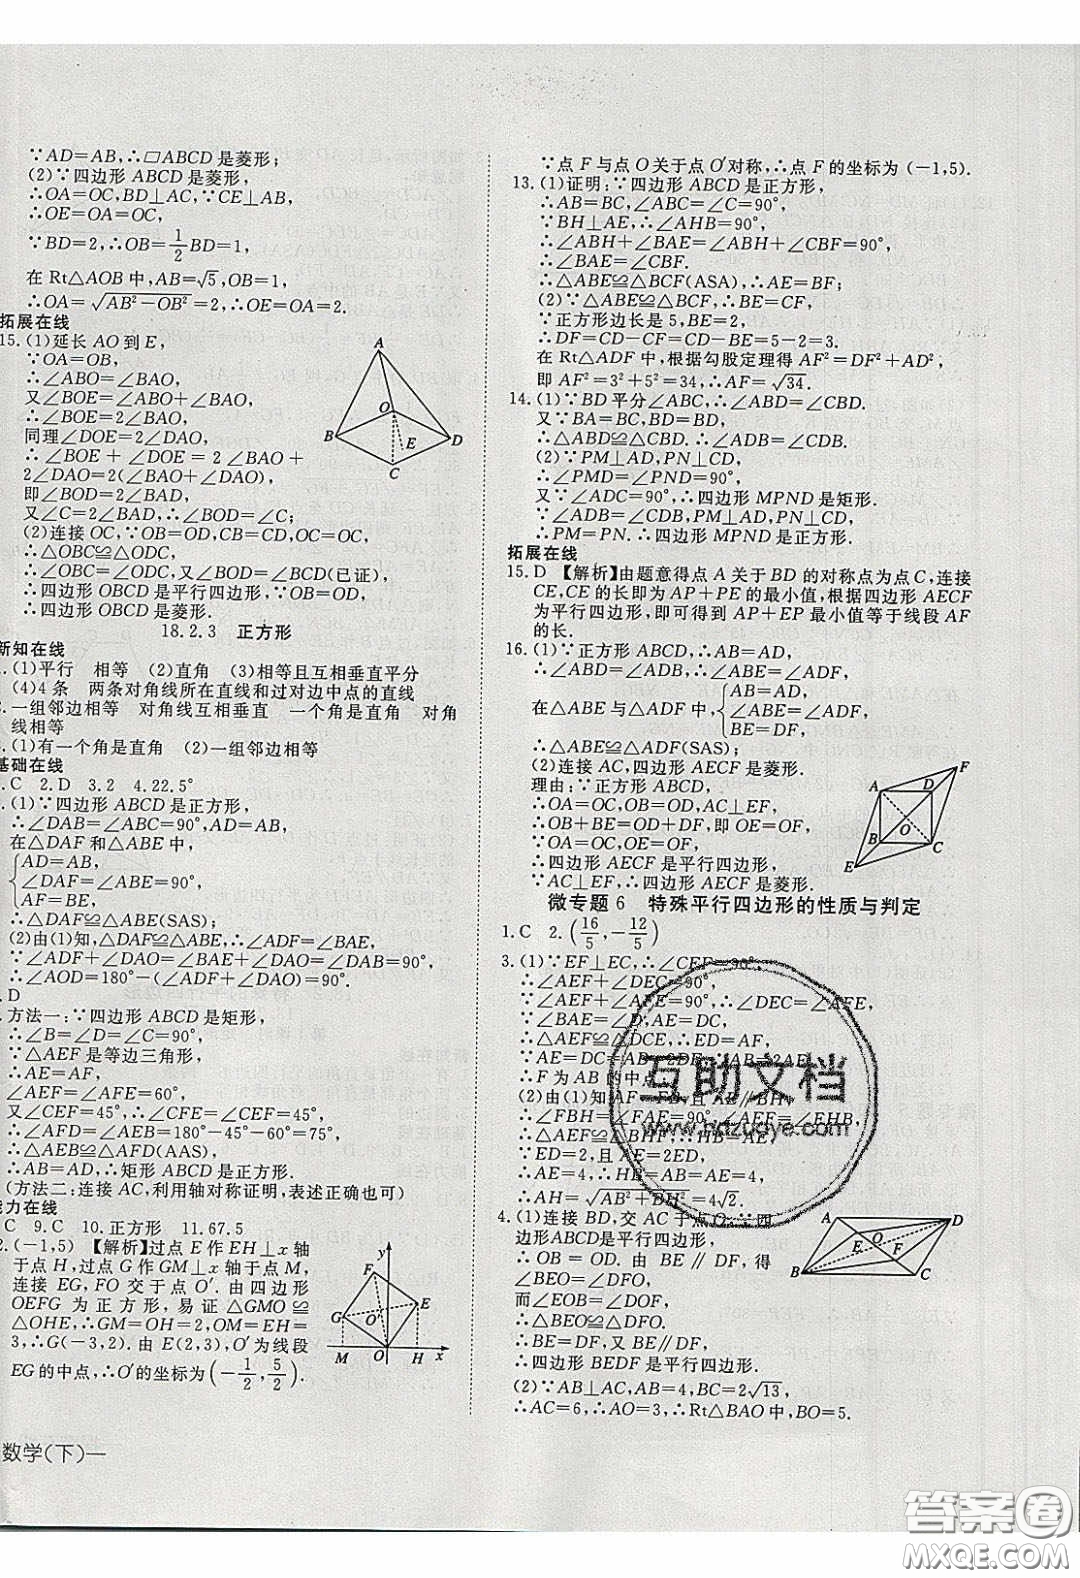 ∵AD=AB,∴▱ABCD 是菱形;
(2)∵四边形 ABCD 是菱形,
∴OA=OC,BD⊥AC,∵CE⊥AB,
∴OE=OA=OC,
∵BD=2,∴OB=1/2BD=1,
在 Rt△AOB 中,AB=√5,OB=1,
∴OA=√(AB²-OB²)=2,∴OE=OA=2.
拓展在线
15.(1)延长 AO 到 E,
∵OA=OB,
∴∠ABO=∠BAO,
又∠BOE=∠ABO+∠BAO,
∴∠BOE=2∠BAO,
同理∠DOE=2∠DAO,
∴∠BOE+∠DOE=2∠BAO+
2∠DAO=2(∠BAO+∠DAO),
即∠BOD=2∠BAD,
又∠C=2∠BAD,∴∠BOD=∠C;
(2)连接 OC,∵OB=OD,CB=CD,OC=OC,
∴△OBC≌△ODC,
∴∠BOC=∠DOC,∠BCO=∠DCO,
∵∠BOD=∠BCD(已证),
∴四边形 OBCD 是平行四边形,∵OB=OD,
∴四边形 OBCD 是菱形.
A
O
E
B
D
C
18.2.3 正方形
新知在线
.(1)平行 相等 (2)直角 (3)相等且互相垂直平分
(4)4 条 两条对角线所在直线和过对边中点的直线
.一组邻边相等 对角线互相垂直 一个角是直角 对角
线相等
.(1)有一个角是直角 (2)一组邻边相等
基础在线
.C 2.D 3.2 4.22.5°
.(1)∵四边形 ABCD 是正方形,
∴∠DAB=∠ABC=90°,AD=AB,
在△DAF 和△ABE 中,
AD=AB,
∠DAF=∠ABE=90°,
AF=BE,
∴△DAF≌△ABE(SAS);
(2)由(1)知,△DAF≌△ABE,∴∠ADF=∠BAE,
∵∠ADF+∠DAO=∠BAE+∠DAO=∠DAB=90°,
∴∠AOD=180°-(∠ADF+∠DAO)=90°.
.D
.方法一:∵四边形 ABCD 是矩形,
∴∠B=∠D=∠C=90°,
∵△AEF 是等边三角形,
∴AE=AF,
∠AEF=∠AFE=60°,
又∠CEF=45°,∴∠CFE=∠CEF=45°,
∴∠AFD=∠AEB=180°-45°-60°=75°,
∴△AEB≌△AFD(AAS),
∴AB=AD,∴矩形 ABCD 是正方形.
(方法二:连接 AC,利用轴对称证明,表述正确也可)
能力在线
C 9.C 10.正方形 11.67.5
2.(-1,5) 【解析】过点 E 作 EH⊥x 轴
于点 H,过点 G 作 GM⊥x 轴于点 M,
连接 EG,FO 交于点 O′. 由四边形
OEFG 为正方形,易证△GMO≌
△OHE,∴GM=OH=2,OM=EH=
3,∴G(-3,2).由 E(2,3),O′为线段
EG 的中点,∴O′的坐标为(-1/2,5/2).
y
F
E
G
O′
M
O
H
x
数学(下)—
∵点 F 与点 O 关于点 O′对称,∴点 F 的坐标为(-1,5).
13.(1)证明:∵四边形 ABCD 是正方形,
∴AB=BC,∠ABC=∠C=90°,
∵BH⊥AE,∴∠AHB=90°,
∴∠ABH+∠BAE=∠ABH+∠CBF=90°,
∴∠BAE=∠CBF.
∴△ABE≌△BCF(ASA),∴AE=BF;
(2)∵△ABE≌△BCF,∴CF=BE=2,
∵正方形边长是 5,BE=2,
∴DF=CD-CF=CD-BE=5-2=3.
在 Rt△ADF 中,根据勾股定理得 AF²=DF²+AD²,
即 AF²=3²+5²=34,∴AF=√34.
14.(1)∵BD 平分∠ABC,∴∠ABD=∠CBD.
又∵BA=BC,BD=BD,
∴△ABD≌△CBD.∴∠ADB=∠CDB.
(2)∵PM⊥AD,PN⊥CD,
∴∠PMD=∠PND=90°.
又∵∠ADC=90°,∴四边形 MPND 是矩形.
∵∠ADB=∠CDB,PM⊥AD,PN⊥CD,
∴PM=PN.∴四边形 MPND 是正方形.
拓展在线
15.D 【解析】由题意得点 A 关于 BD 的对称点为点 C,连接
CE,CE 的长即为 AP+PE 的最小值,根据四边形 AECF
为平行四边形,即可得到 AP+EP 最小值等于线段 AF
的长.
16.(1)∵正方形 ABCD,∴AB=AD,
∴∠ABD=∠ADB,∴∠ABE=∠ADF,
在△ABE 与△ADF 中,
AB=AD,
∠ABE=∠ADF,
BE=DF,
∴△ABE≌△ADF(SAS);
(2)连接 AC,四边形 AECF 是菱形.
理由:∵正方形 ABCD,
∴OA=OC,OB=OD,AC⊥EF,
∴OB+BE=OD+DF,即 OE=OF,
∵OA=OC,OE=OF,
∴四边形 AECF 是平行四边形,
∵AC⊥EF,∴四边形 AECF 是菱形.
A
D
F
O
B
C
E
微专题 6 特殊平行四边形的性质与判定
1.C 2.(16/5,-12/5)
3.(1)∵EF⊥EC,∴∠CEF=90°,
∴∠AEF+∠DEC=90°,
∵∠AEF+∠AFE=90°,∴∠DEC=∠AFE,
又∵∠A=∠EDC=90°,AE=DC,
∴△AEF≌△DCE,∴ED=AF,
∵AE=DC=AB=2DE,∴AB=2AF,
∴F 为 AB 的中点;
(2)由(1)知 AF=FB,且 AE∥BH,
∴∠FBH=∠FAE=90°,∠AEF=∠EHB,
∴△AEF≌△BHF,∴HB=AE,
∵ED=2,且 AE=2ED,
∴AE=4,∴HB=AB=AE=4,
∴AH=√(AB²+BH²)=4√2.
4.(1)连接 BD,交 AC 于点 O,∵四
边形ABCD是平行四边形,
∴OB=OD. 由 BE∥DF,得
∠BEO=∠DFO,
而∠EOB=∠FOD,
∴△BEO≌△DFO.
∴BE=DF,又BE∥DF,
∴四边形 BEDF 是平行四边形.
(2)∵AB⊥AC,AB=4,BC=2√13,
∴AC=6,∴AO=3,∴Rt△BAO 中,BO=5.
A
D
O
E
F
B
C
互助文档
www.hdzuoye.com
答案圈
MXQE.COM